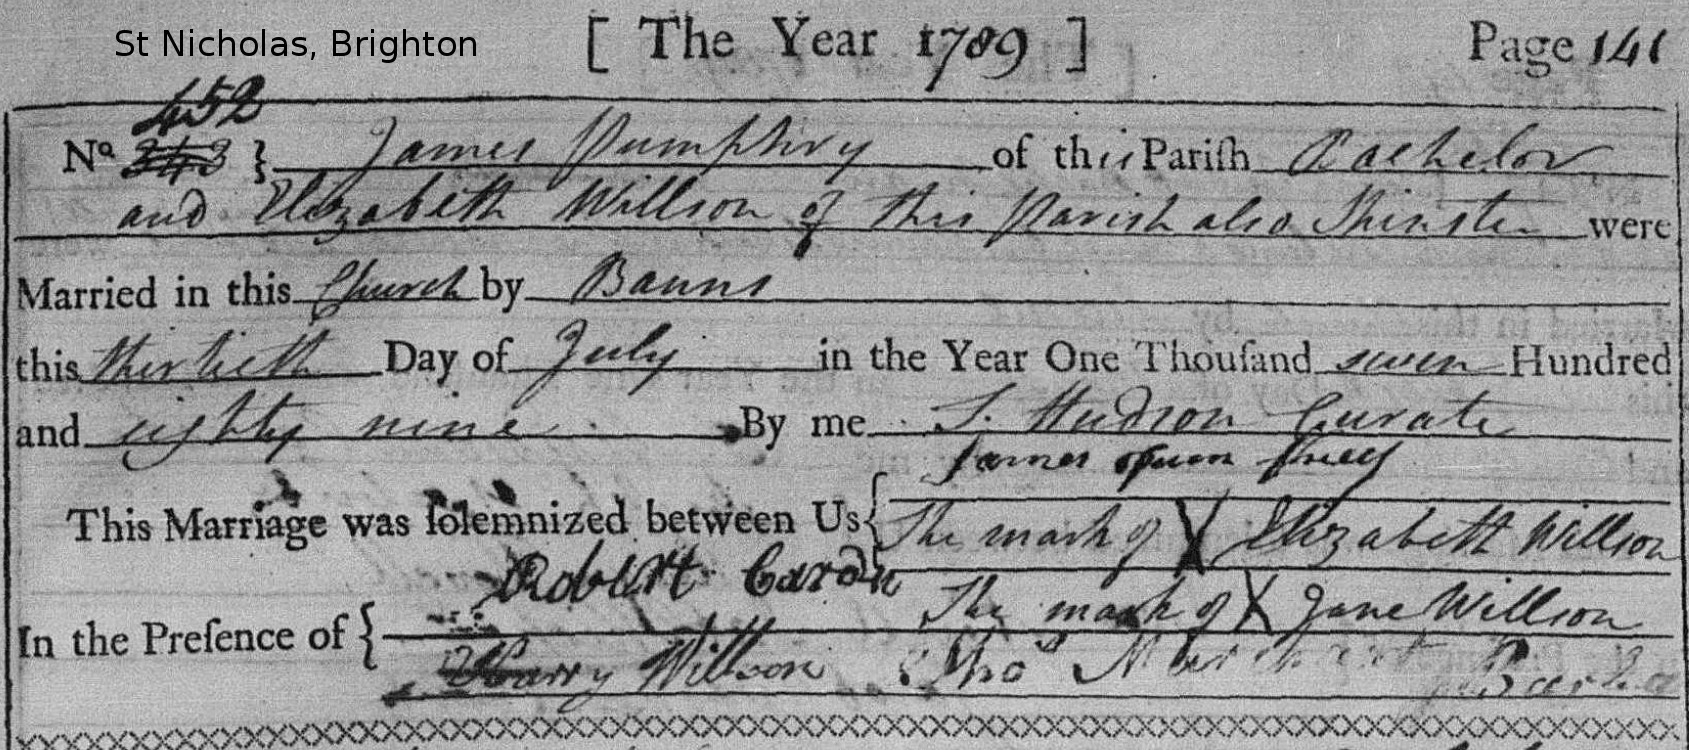 St Nicholas, Brighton
[ The Year 1789 ] Page 141
452
No 343 } James Pumphry of this Pariſh Bachelor
and Elizabeth Willson of this Parish also Spinster were
Married in this Church by Banns
this thirtieth Day of July in the Year One Thouſand seven Hundred
and eighty nine By me J. Hudson Curate
James
This Marriage was ſolemnized between Us { The mark of X Elizabeth Willson
Robert
The mark of X Jane Willson
In the Preſence of {
Harry Willson Thos Marchant